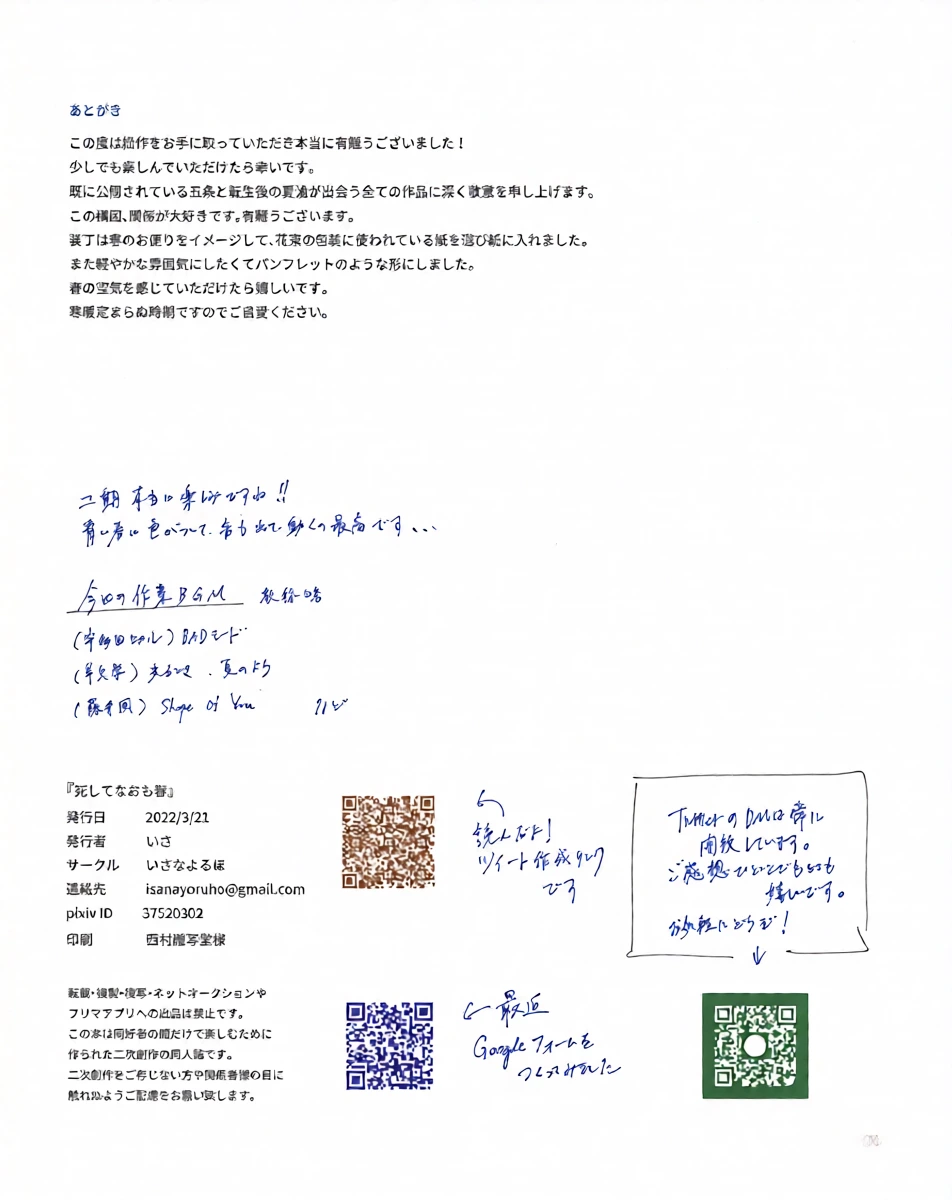 あとがき
この度は拙作をお手に取っていただき本当に有難うございました！
少しでも楽しんでいただけたら幸いです。
既に公開されている五条と転生後の夏油が出会う全ての作品に深く敬意を申し上げます。
この構図、関係が大好きです。有難うございます。
装丁は春のお便りをイメージして、花束の包装に使われている紙を遊び紙に入れました。
また軽やかな雰囲気にしたくてパンフレットのような形にしました。
春の空気を感じていただけたら嬉しいです。
寒暖定まらぬ時期ですのでご自愛ください。
二期 本当に楽しみですね!!
青い春に色がついて、音も出て動くの最高です...
今回の作業BGM 敬称略
(宇多田ヒカル) BADモード
(羊文学) 光るとき、夏のよう
(藤井風) Shape Of You など
『死してなおも春』
発行日 2022/3/21
発行者 いさ
サークル いさなよるほ
連絡先 isanayoruho@gmail.com
pixiv ID 37520302
印刷 西村謄写堂様
読んだよ!
ツイート作成リンク
です
TwitterのDMは常に
開放しています。
ご感想などどこでもとても
嬉しいです。
お気軽にどうぞ!
転載・複製・複写・ネットオークションや
フリマアプリへの出品は禁止です。
この本は同好者の間だけで楽しむために
作られた二次創作の同人誌です。
二次創作をご存じない方や関係者様の目に
触れぬようご配慮をお願い致します。
最近
Googleフォームを
つくってみました